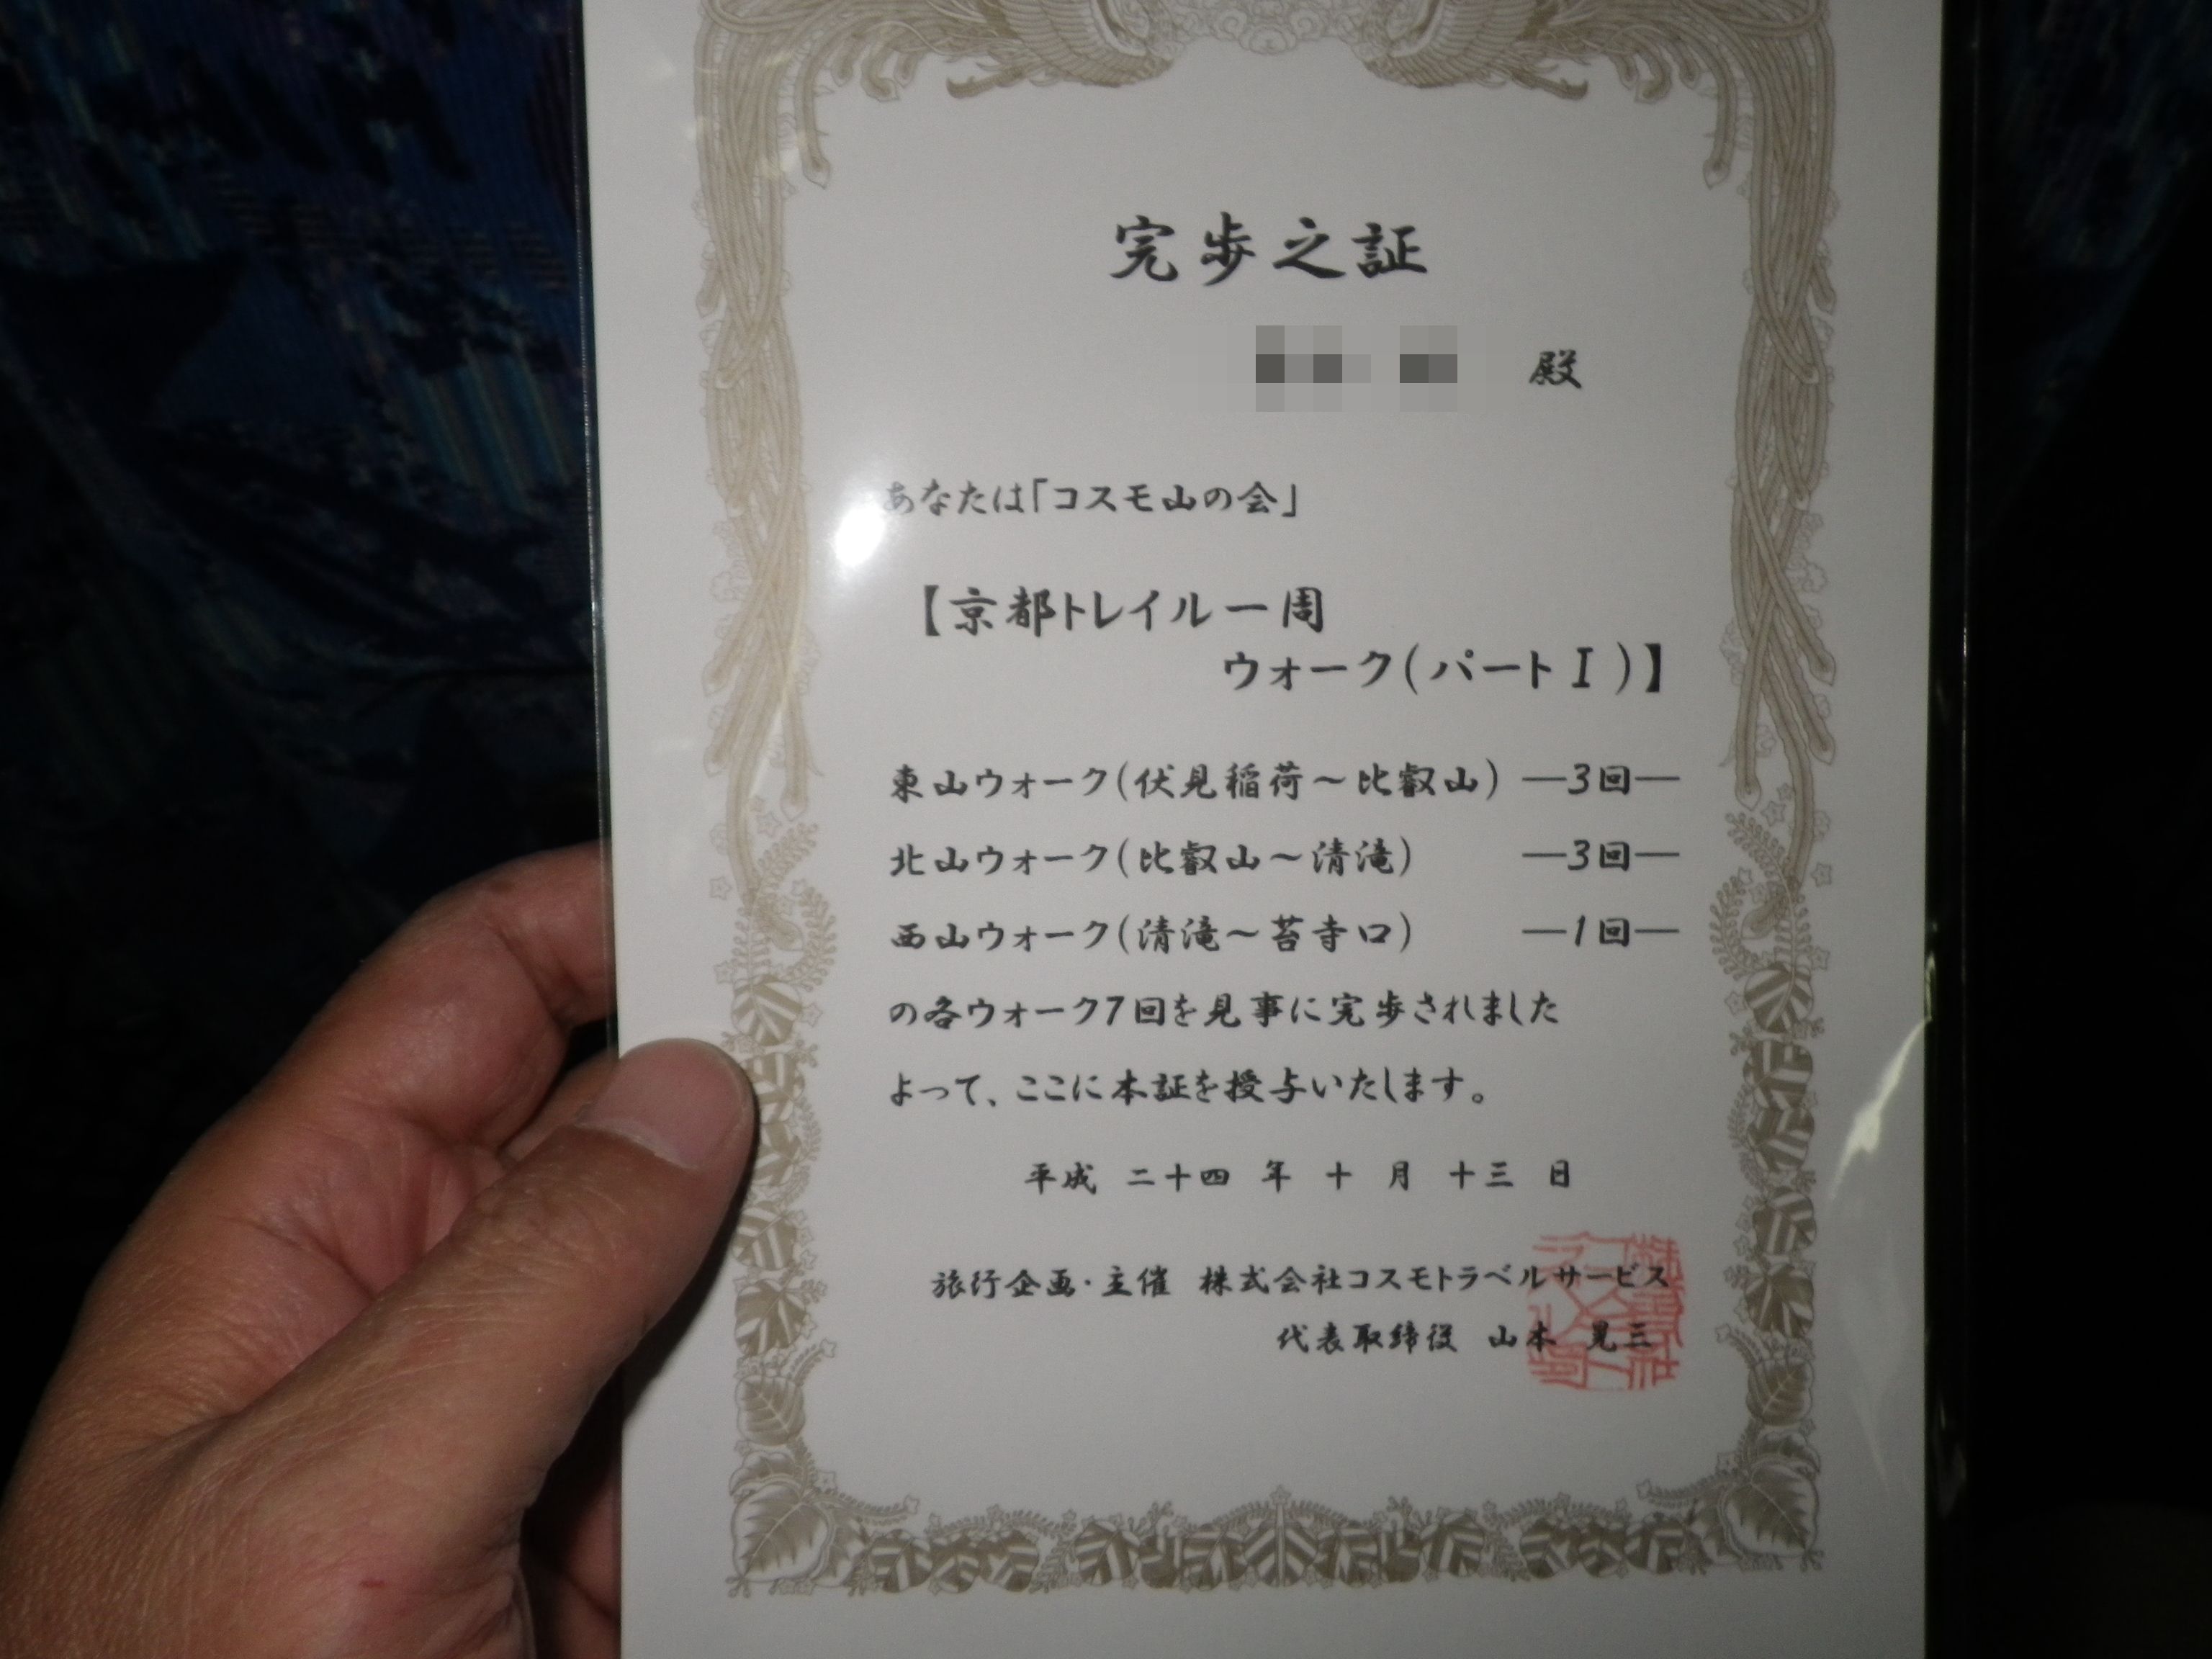 完歩之証
殿
あなたは「コスモ山の会」
【京都トレイル一周
ウォーク(パートⅠ)】
東山ウォーク(伏見稲荷～比叡山) ―3回―
北山ウォーク(比叡山～清滝) ―3回―
西山ウォーク(清滝～苔寺口) ―1回―
の各ウォーク7回を見事に完歩されました
よって、ここに本証を授与いたします。
平成 二十四 年 十 月 十三 日
旅行企画・主催 株式会社コスモトラベルサービス
代表取締役 山本 晃三